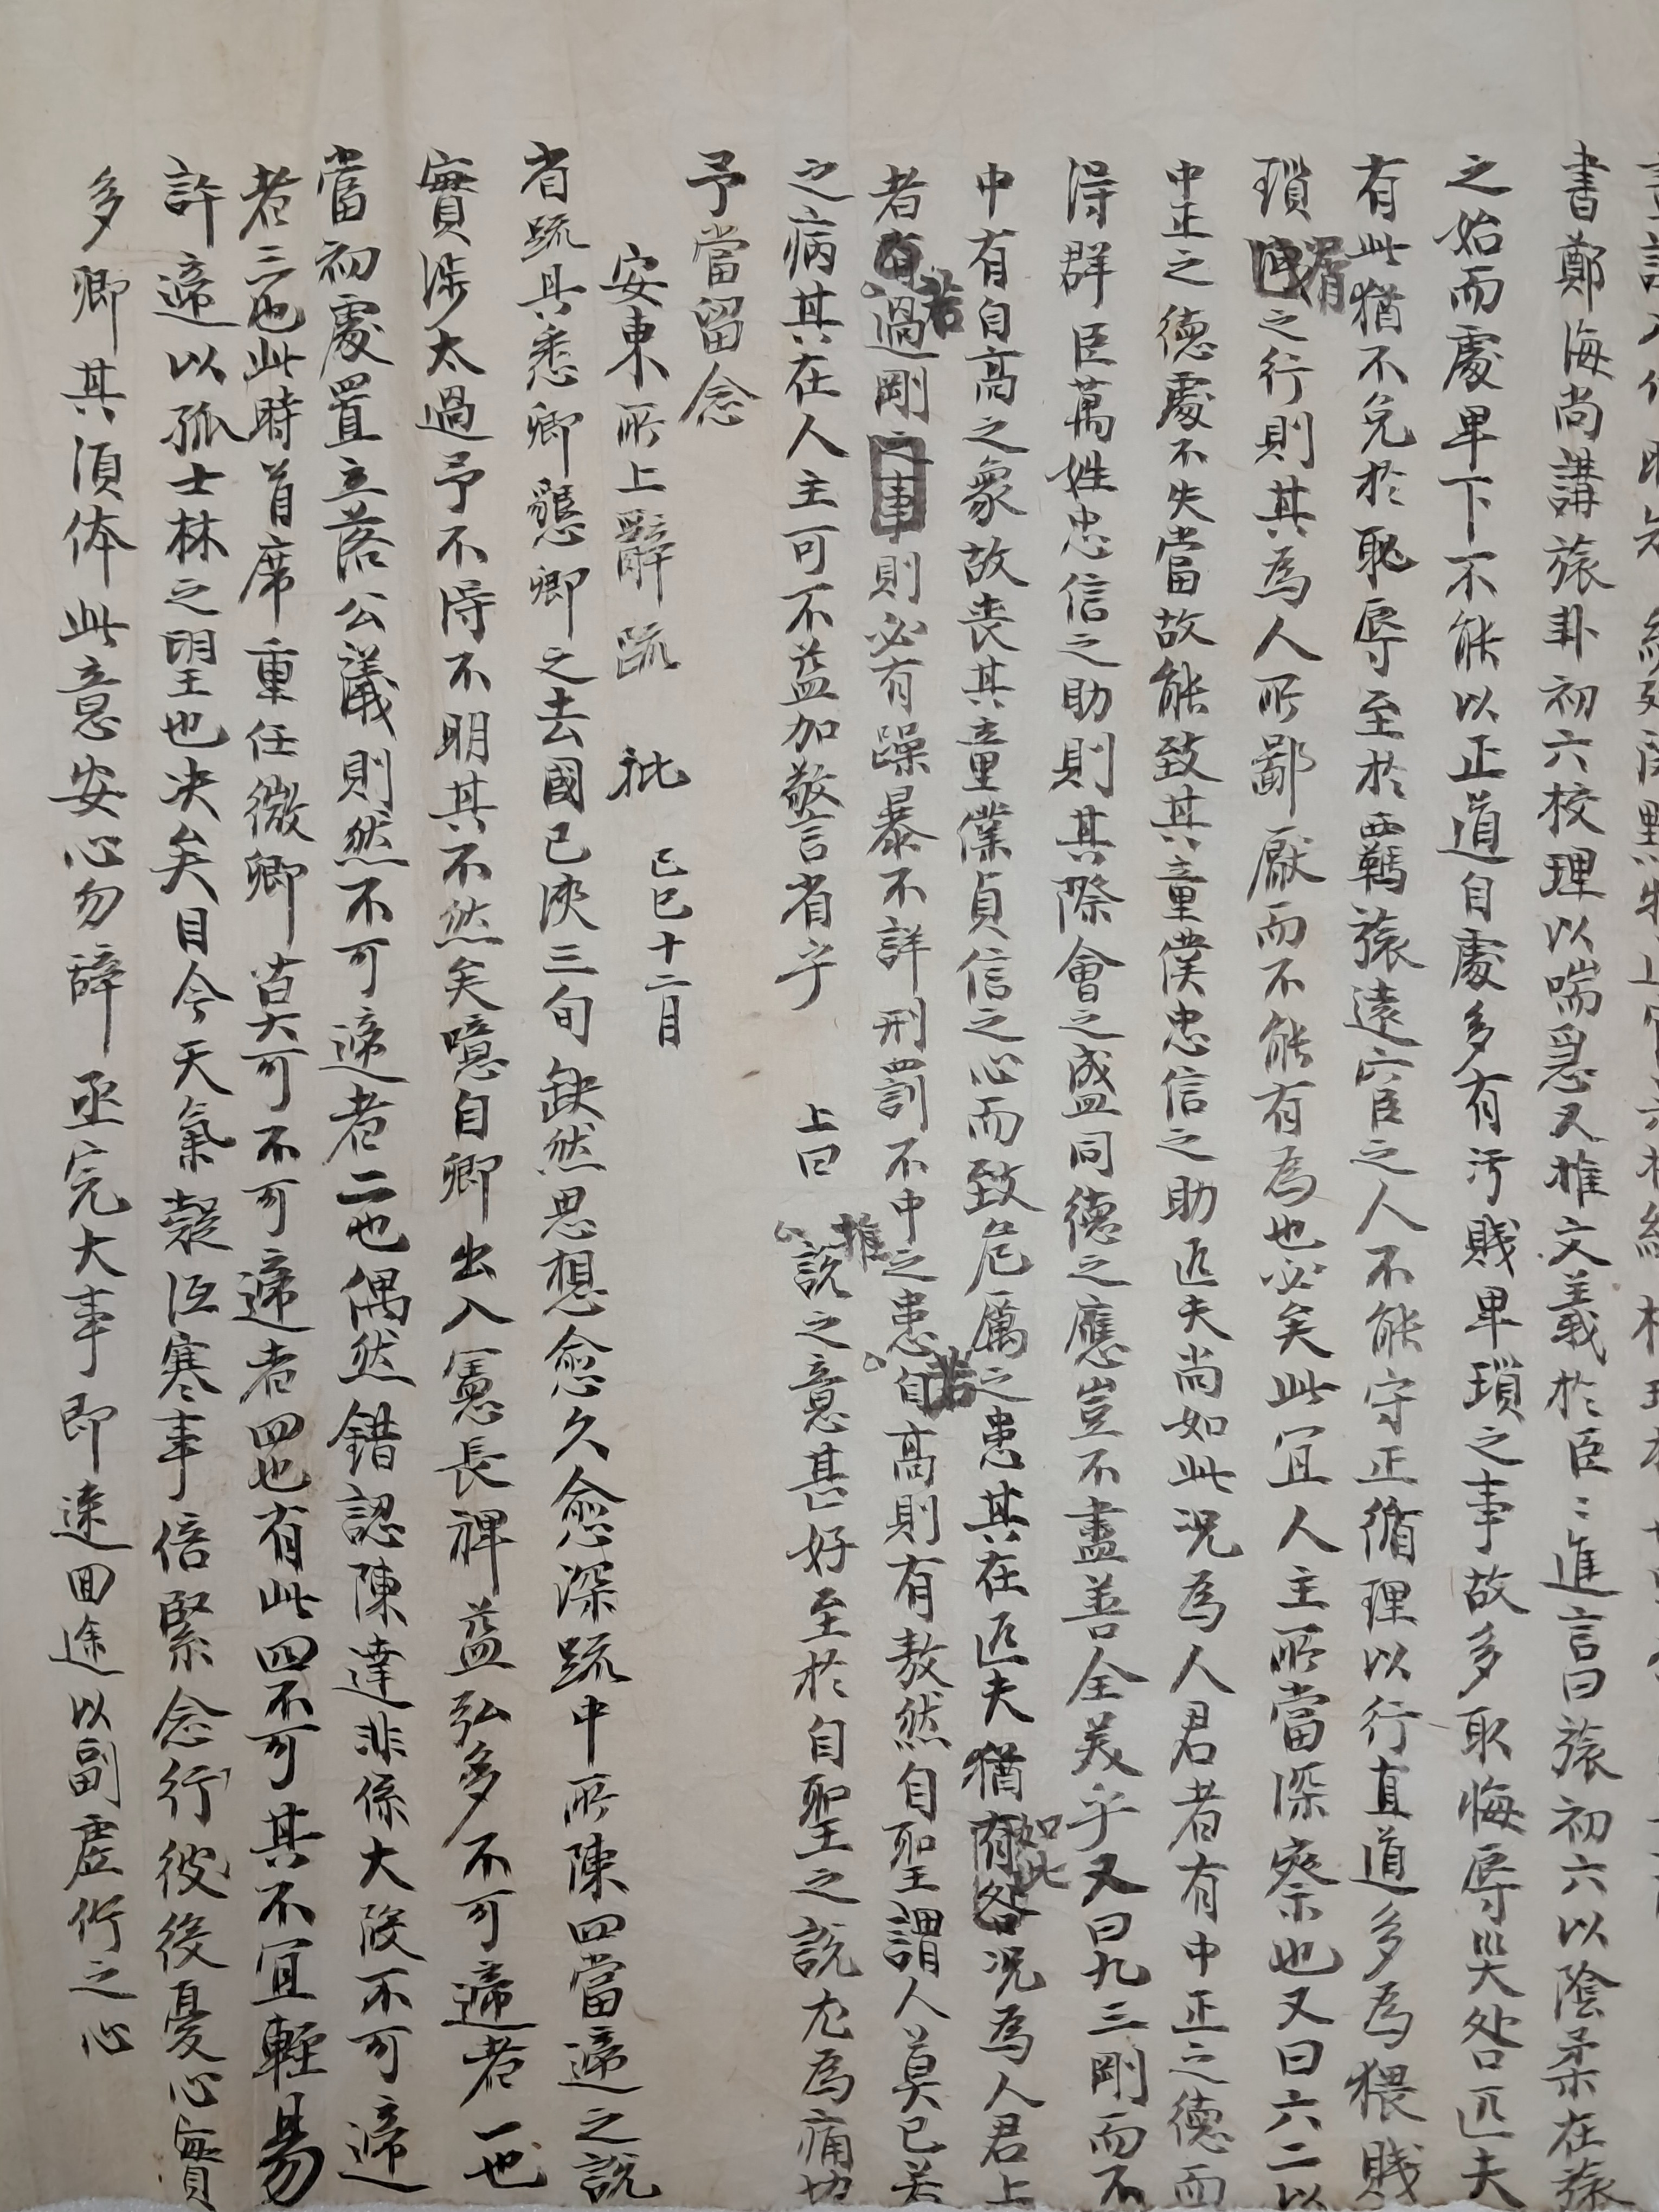 書鄭海尚講旅卦初六校理以喘急又推文義於臣〻進言曰旅初六以陰柔在旅
之始而處卑下不能以正道自處多有汚賤卑瑣之事故多取悔辱災咎匹夫
有此猶不免於恥辱至於羈旅遠宦之人不能守正循理以行直道多爲猥賤
瑣屑之行則其爲人所鄙厭而不能有爲也必矣此宜人主所當深察也又曰六二以
中正之德處不失當故能致其童僕忠信之助匹夫尙如此况爲人君者有中正之德而
得群臣萬姓忠信之助則其際會之盛同德之應豈不盡善全美乎又曰九三剛而不
中有自高之象故喪其童僕貞信之心而致危厲之患其在匹夫猶如此况爲人君上
者若過剛則必有躁暴不詳刑罰不中之患若自高則有敖然自聖謂人莫已若
之病其在人主可不益加敬言省乎 上曰推說之意甚好至於自聖之說尤爲痛切
予當留念
安東所上辭疏 批 己巳十二月
省疏具悉卿懇卿之去國已浹三旬缺然思想愈久愈深疏中所陳四當遞之說
實涉太過予不得不明其不然矣噫自卿出入憲長裨益弘多不可遞者一也
當初處置立落公議則然不可遞者二也偶然錯認陳達非係大段不可遞
者三也此時首席重任微卿莫可不可遞者四也有此四不可其不宜輕易
許遞以孤士林之望也决矣目今天氣漸沍寒事倍緊念行役後憂心實
多卿其須体此意安心勿辭亟完大事卽速回途以副虛佇之心